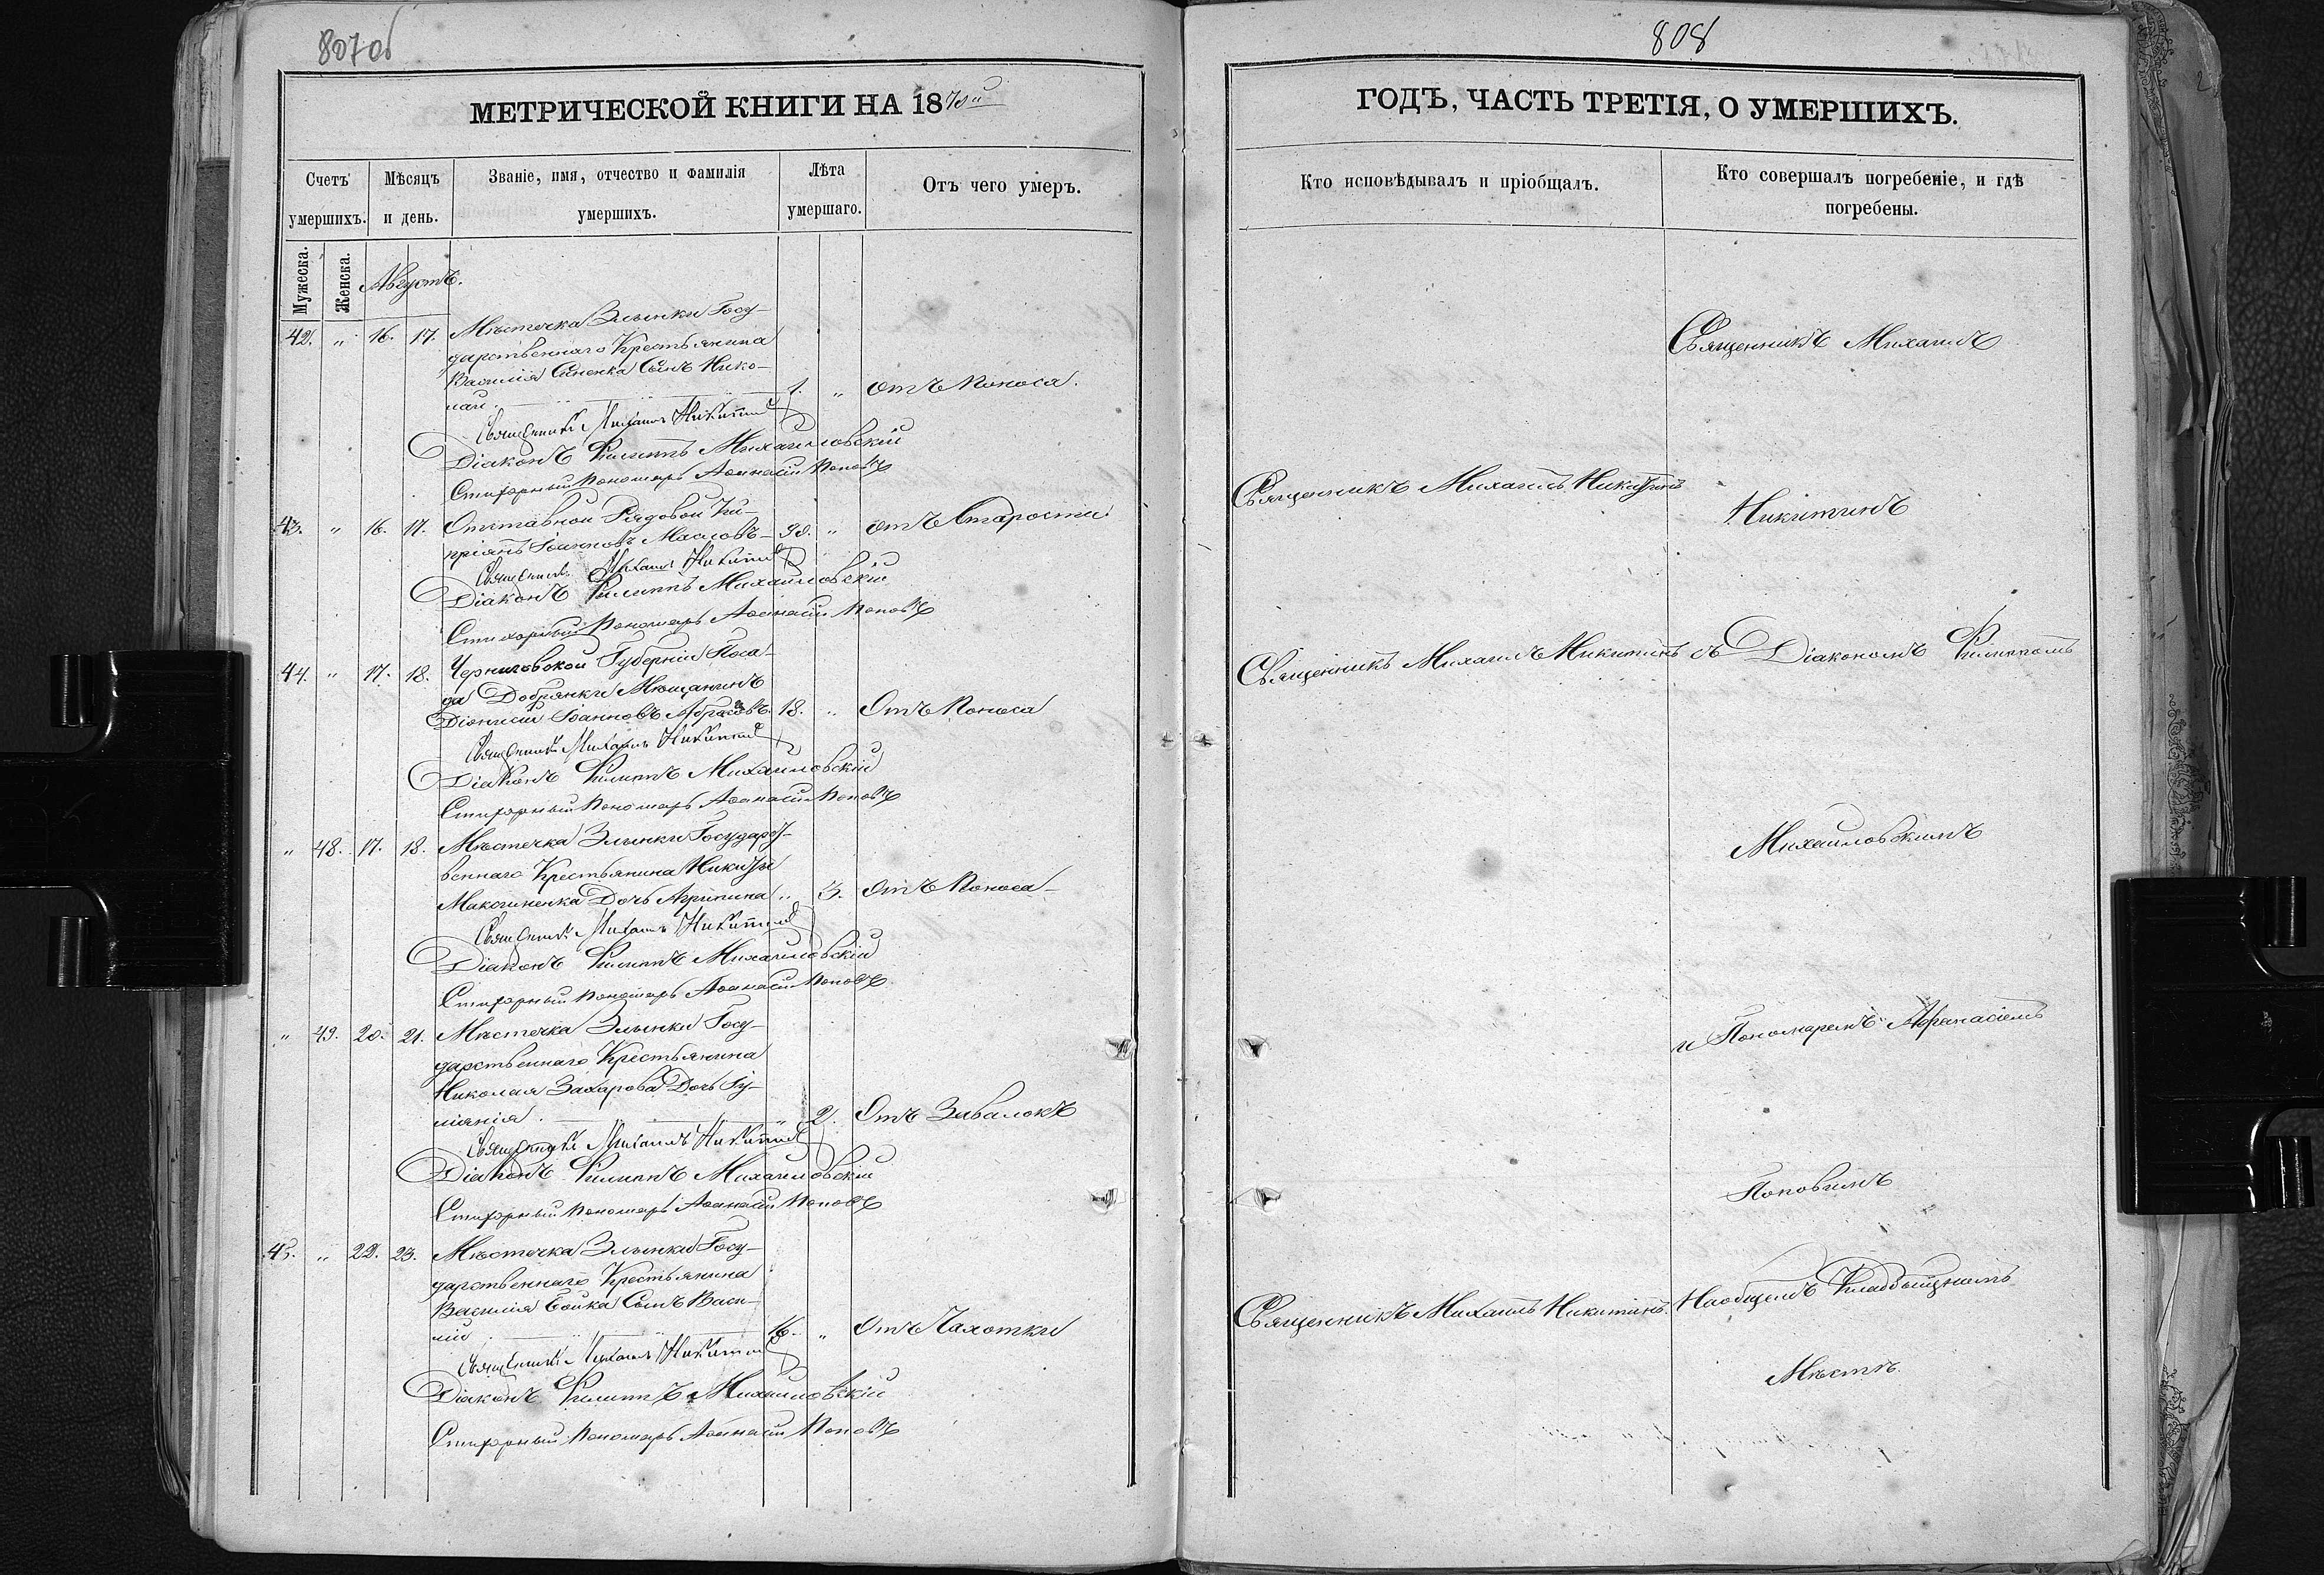 807об
МЕТРИЧЕСКОЙ КНИГИ НА 1870й
Счетъ умершихъ.
Мѣсяцъ и день.
Званіе, имя, отчество и фамилія умершихъ.
Лѣта умершаго.
Отъ чего умеръ.
Мужеска.
Женска.
Августъ.
42. " 16. 17. Мѣстечка Злынки Госу-
дарственнаго Крестьянина
Василія Сыненка Сынъ Нико-
лай. 1. " отъ Поноса.
Священникъ Михаилъ Никитинъ
Діаконъ Филиппъ Михайловскій
Стихарный Пономарь Афанасій Поповъ
43. " 16. 17. Отставной Рядовой Ки-
пріянъ Іоанновъ Масловъ 90. " отъ Старости
Священникъ Михаилъ Никитинъ
Діаконъ Филиппъ Михайловскій
Стихарный Пономарь Афанасій Поповъ
44. " 17. 18. Черниговской Губерніи Поса-
да Добрянки Мѣщанинъ
Діонисій Іоанновъ 18. " Отъ Поноса
Священникъ Михаилъ Никитинъ
Діаконъ Филиппъ Михайловскій
Стихарный Пономарь Афанасій Поповъ
" 48. 17. 18. Мѣстечка Злынки Государст-
веннаго Крестьянина Никиты
Максименка Дочь Агрипина " 3. Отъ Поноса
Священникъ Михаилъ Никитинъ
Діаконъ Филиппъ Михайловскій
Стихарный Пономарь Афанасій Поповъ
" 49. 20. 21. Мѣстечка Злынки Госу-
дарственнаго Крестьянина
Николая Захарова Дочь Іу-
ліянія. " 2. Отъ Завалокъ
Священникъ Михаилъ Никитинъ
Діаконъ Филиппъ Михайловскій
Стихарный Пономарь Афанасій Поповъ
45. " 22. 23. Мѣстечка Злынки Госу-
дарственнаго Крестьянина
Василія Бойка Сынъ Васи-
лій 16. " Отъ Чахотки
Священникъ Михаилъ Никитинъ
Діаконъ Филиппъ Михайловскій
Стихарный Пономарь Афанасій Поповъ
808
ГОДЪ, ЧАСТЬ ТРЕТІЯ, О УМЕРШИХЪ.
Кто исповѣдывалъ и пріобщалъ.
Кто совершалъ погребеніе, и гдѣ погребены.
Священникъ Михаилъ
Священникъ Михаилъ Никитинъ
Никитинъ
Священникъ Михаилъ Никитинъ
съ Діакономъ Филиппомъ
Михайловскимъ
и Пономаремъ Афанасіемъ
Поповымъ
Священникъ Михаилъ Никитинъ.
На общемъ Кладбищномъ
Мѣстѣ.